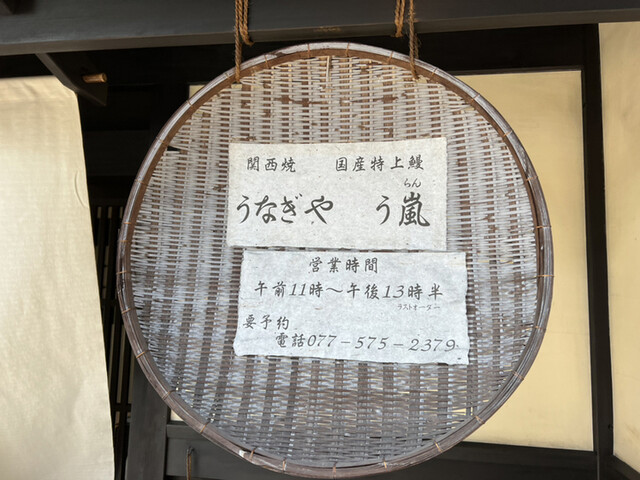 関西焼 国産特上鰻
うなぎや う嵐
らん
営業時間
午前11時～午後13時半
ラストオーダー
要予約
電話077-575-2379